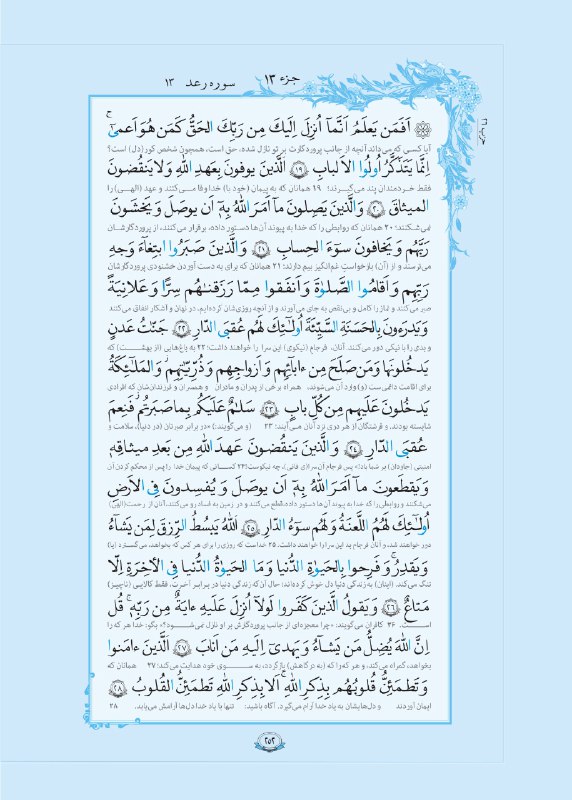 جزء ۱۳ سوره رعد ۱۳
حزب ۲۶
اَفَمَن يَعلَمُ اَنَّمآ اُنزِلَ اِلَيكَ مِن رَبِّكَ الحَقُّ كَمَن هُوَ اَعمىٰٓ ۚ
آیا کسی که می‌داند آنچه از جانب پروردگارت بر تو نازل شده، حق است، همچون شخص کور(دل) است؟
اِنَّما يَتَذَكَّرُ اُولُوا الاَلبابِ ﴿۱۹﴾ اَلَّذينَ يوفونَ بِعَهدِ اللّٰهِ وَ لا يَنقُضونَ
فقط خردمندان پند می‌گیرند؛ ۱۹ همانان که به پیمان (خود با) خدا وفا می‌کنند و عهد (الهی) را
الميثاقَ ﴿۲۰﴾ وَ الَّذينَ يَصِلونَ مآ اَمَرَ اللّٰهُ بِهٖٓ اَن يوصَلَ وَ يَخشَونَ
نمی‌شکنند؛ ۲۰ همانان که روابطی را که خدا به پیوند آن‌ها دستور داده، برقرار می‌کنند، از پروردگارشان
رَبَّهُم وَ يَخافونَ سوٓءَ الحِسابِ ﴿۲۱﴾ وَ الَّذينَ صَبَرُوا ابتِغآءَ وَجهِ
می‌ترسند و از (آن) بازخواستِ غم‌انگیز بیم دارند؛ ۲۱ همانان که برای به دست آوردن خشنودی پروردگارشان
رَبِّهِم وَ اَقامُوا الصَّلوٰةَ وَ اَنفَقوا مِمّا رَزَقنٰهُم سِرًّا وَ عَلانِيَةً
صبر می‌کنند و نماز را کامل و بی‌نقص به جای می‌آورند و از آنچه روزی‌شان کرده‌ایم، در نهان و آشکار انفاق می‌کنند
وَ يَدرَءونَ بِالحَسَنَةِ السَّيِّئَةَ اُولٰٓئِكَ لَهُم عُقبَى الدّارِ ﴿۲۲﴾ جَنّٰتُ عَدنٍ
و بدی را با نیکی دور می‌کنند. آنان، فرجام (نیکوی) این سرا را خواهند داشت؛ ۲۲ باغ‌هایی (از بهشت) که
يَدخُلونَها وَ مَن صَلَحَ مِن ءابآئِهِم وَ اَزواجِهِم وَ ذُرِّيّٰتِهِم ۖ وَ المَلٰٓئِكَةُ
برای اقامت دائمی‌ست (و) وارد آن می‌شوند، همراه برخی از پدران و مادران و همسران و فرزندان‌شان که افرادی
يَدخُلونَ عَلَيهِم مِن كُلِّ بابٍ ﴿۲۳﴾ سَلٰمٌ عَلَيكُم بِما صَبَرتُم ۚ فَنِعمَ
شایسته بودند، و فرشتگان از هر دری نزد آنان می‌آیند؛ ۲۳ (و می‌گویند:) «در برابر صبرتان (در دنیا)، سلامت و
عُقبَى الدّارِ ﴿۲۴﴾ وَ الَّذينَ يَنقُضونَ عَهدَ اللّٰهِ مِن بَعدِ ميثاقِهٖ
امنیتی (جاودان) بر شما باد!» پس فرجام آن سرا(ی فانی)، چه نیکوست! ۲۴ کسانی که پیمان خدا را پس از محکم کردن آن
وَ يَقطَعونَ مآ اَمَرَ اللّٰهُ بِهٖٓ اَن يوصَلَ وَ يُفسِدونَ فِى الاَرضِ
می‌شکنند و روابطی را که خدا به پیوند آن‌ها دستور داده، قطع می‌کنند و در زمین به فساد رو می‌کنند، آنان از رحمت (الهی)
اُولٰٓئِكَ لَهُمُ اللَّعنَةُ وَ لَهُم سوٓءُ الدّارِ ﴿۲۵﴾ اَللّٰهُ يَبسُطُ الرِّزقَ لِمَن يَشآءُ
دور خواهند شد، و آنان فرجام بد این سرا را خواهند داشت. ۲۵ خداست که روزی را برای هر کس که بخواهد، می‌گسترد (یا)
وَ يَقدِرُ ۚ وَ فَرِحوا بِالحَيوٰةِ الدُّنيا وَ مَا الحَيوٰةُ الدُّنيا فِى الآخِرَةِ اِلّا
تنگ می‌کند. (اینان) به زندگی دنیا دل خوش کرده‌اند؛ حال آن‌که زندگی دنیا در برابر آخرت، فقط کالایی (ناچیز)
مَتاعٌ ﴿۲۶﴾ وَ يَقولُ الَّذينَ كَفَروا لَولآ اُنزِلَ عَلَيهِ ءايَةٌ مِن رَبِّهٖ ۗ قُل
است. ۲۶ کافران می‌گویند: «چرا معجزه‌ای از جانب پروردگارش بر او نازل نمی‌شود؟» بگو: خدا هر که را
اِنَّ اللّٰهَ يُضِلُّ مَن يَشآءُ وَ يَهدىٓ اِلَيهِ مَن اَنابَ ﴿۲۷﴾ اَلَّذينَ ءامَنوا
بخواهد، گمراه می‌کند، و هر که را که (به درگاهش) بازگردد، به سوی خود هدایت می‌کند؛ ۲۷ همانان که
وَ تَطمَئِنُّ قُلوبُهُم بِذِكرِ اللّٰهِ ۗ اَلا بِذِكرِ اللّٰهِ تَطمَئِنُّ القُلوبُ ﴿۲۸﴾
ایمان آوردند و دل‌هایشان به یاد خدا آرام می‌گیرد. آگاه باشید: تنها با یاد خدا دل‌ها آرامش می‌یابد. ۲۸
۲۵۲